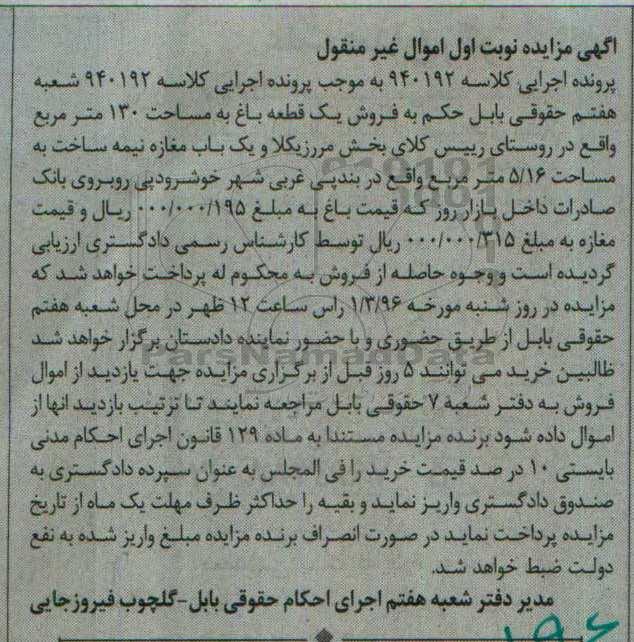 آگهی مزایده نوبت اول اموال غیر منقول
پرونده اجرایی کلاسه ۹۴۰۱۹۲ به موجب پرونده اجرایی کلاسه ۹۴۰۱۹۲ شعبه
هفتم حقوقی بابل حکم به فروش یک قطعه باغ به مساحت ۱۳۰ متر مربع
واقع در روستای رییس کلای بخش مررزیکلا و یک باب مغازه نیمه ساخت به
مساحت ۵/۱۶ متر مربع واقع در بندپی غربی شهر خوشرودپی روبروی بانک
صادرات داخل بازار روز که قیمت باغ به مبلغ ۰۰۰/۰۰۰/۱۹۵ ریال و قیمت
مغازه به مبلغ ۰۰۰/۰۰۰/۳۱۵ ریال توسط کارشناس رسمی دادگستری ارزیابی
گردیده است و وجوه حاصله از فروش به محکوم له پرداخت خواهد شد که
مزایده در روز شنبه مورخه ۱/۳/۹۶ راس ساعت ۱۲ ظهر در محل شعبه هفتم
حقوقی بابل از طریق حضوری و با حضور نماینده دادستان برگزار خواهد شد
طالبین خرید می توانند ۵ روز قبل از برگزاری مزایده جهت یازدید از اموال
فروش به دفتر شعبه ۷ حقوقی بابل مراجعه نمایند تا ترتیب بازدید انها از
اموال داده شود برنده مزایده مستندا به ماده ۱۲۹ قانون اجرای احکام مدنی
بایستی ۱۰ در صد قیمت خرید را فی المجلس به عنوان سپرده دادگستری به
صندوق دادگستری واریز نماید و بقیه را حداکثر ظرف مهلت یک ماه از تاریخ
مزایده پرداخت نماید در صورت انصراف برنده مزایده مبلغ واریز شده به نفع
دولت ضبط خواهد شد.
مدیر دفتر شعبه هفتم اجرای احکام حقوقی بابل-گلچوب فیروزجایی
ParsNamadData